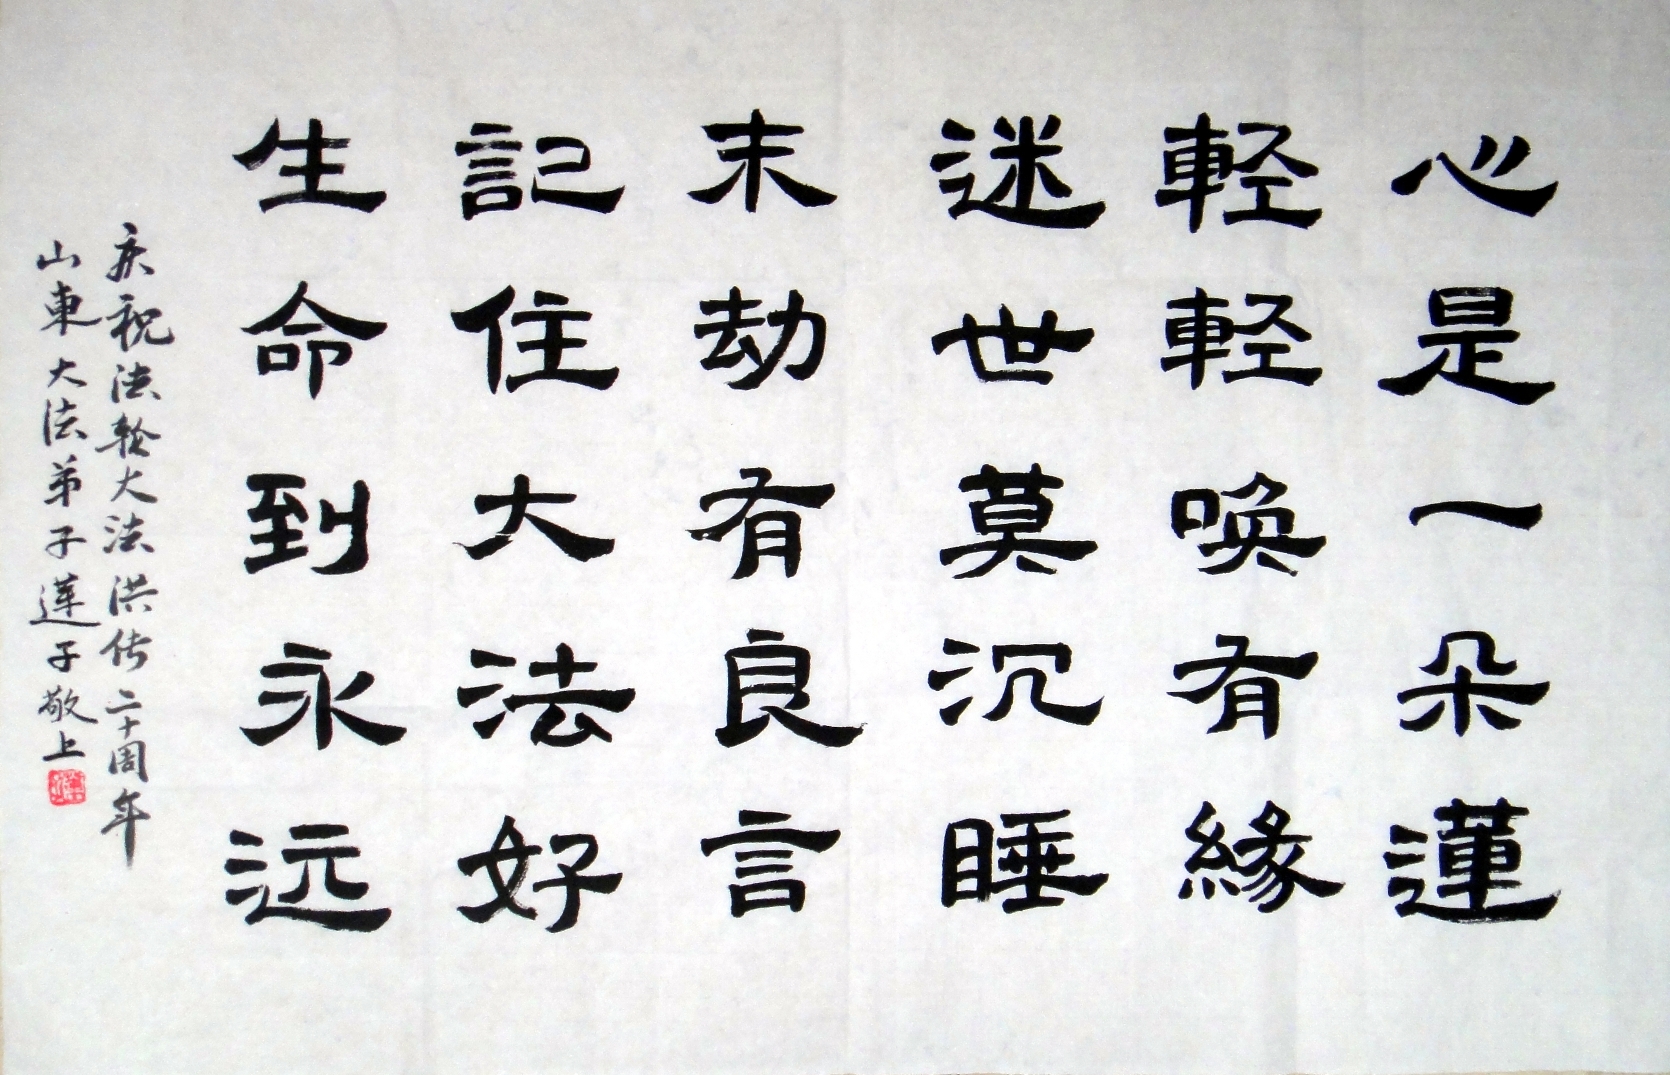 心是一朵蓮
輕輕唤有緣
迷世莫沉睡
末劫有良言
記住大法好
生命到永远
庆祝法轮大法洪传二十周年
山東大法弟子蓮子敬上